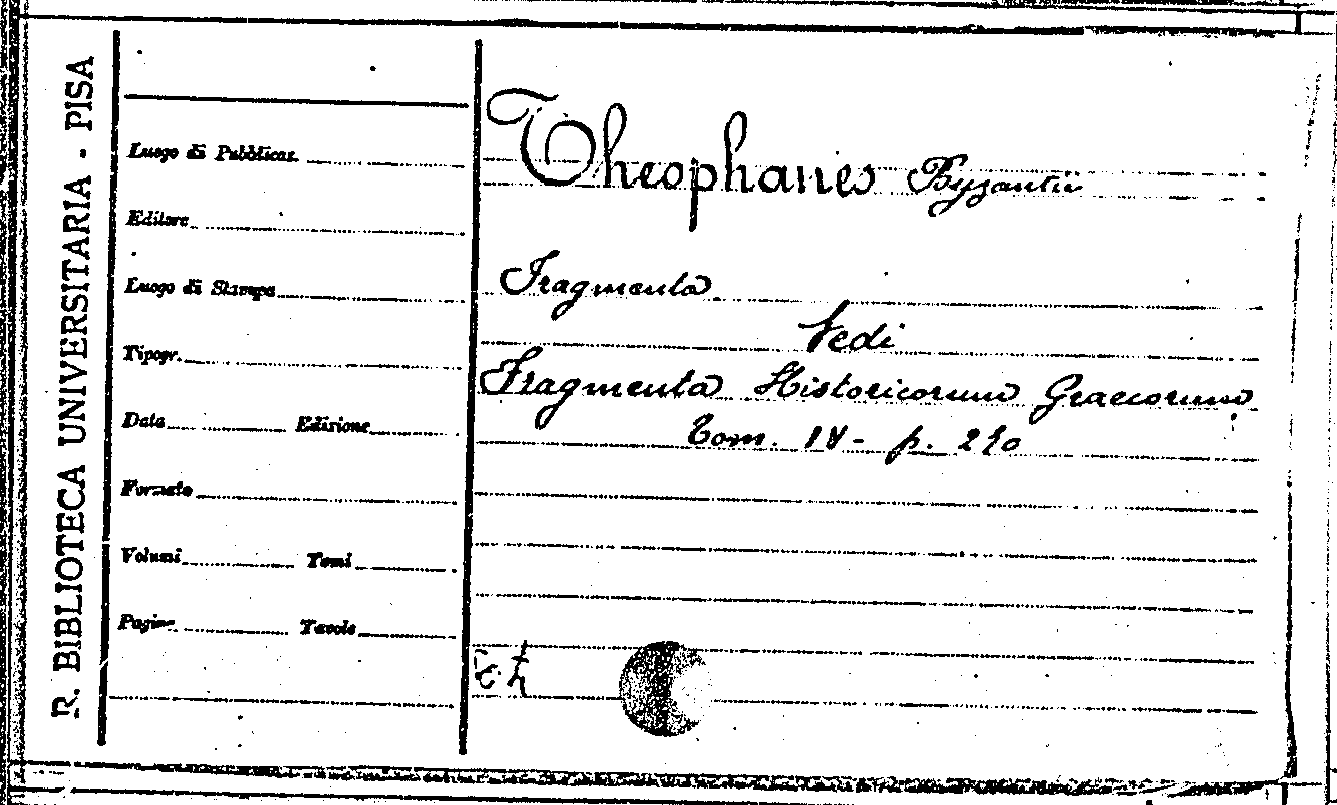 R. BIBLIOTECA UNIVERSITARIA - PISA
Luogo di Pubblicaz.
Editore
Luogo di Stampa
Tipogr.
Data Edizione
Formato
Volumi Tomi
Pagine Tavole
Theophanes Byzantii
Fragmenta
Vedi
Fragmenta Historicorum Graecorum
Tom. IV - p. 270